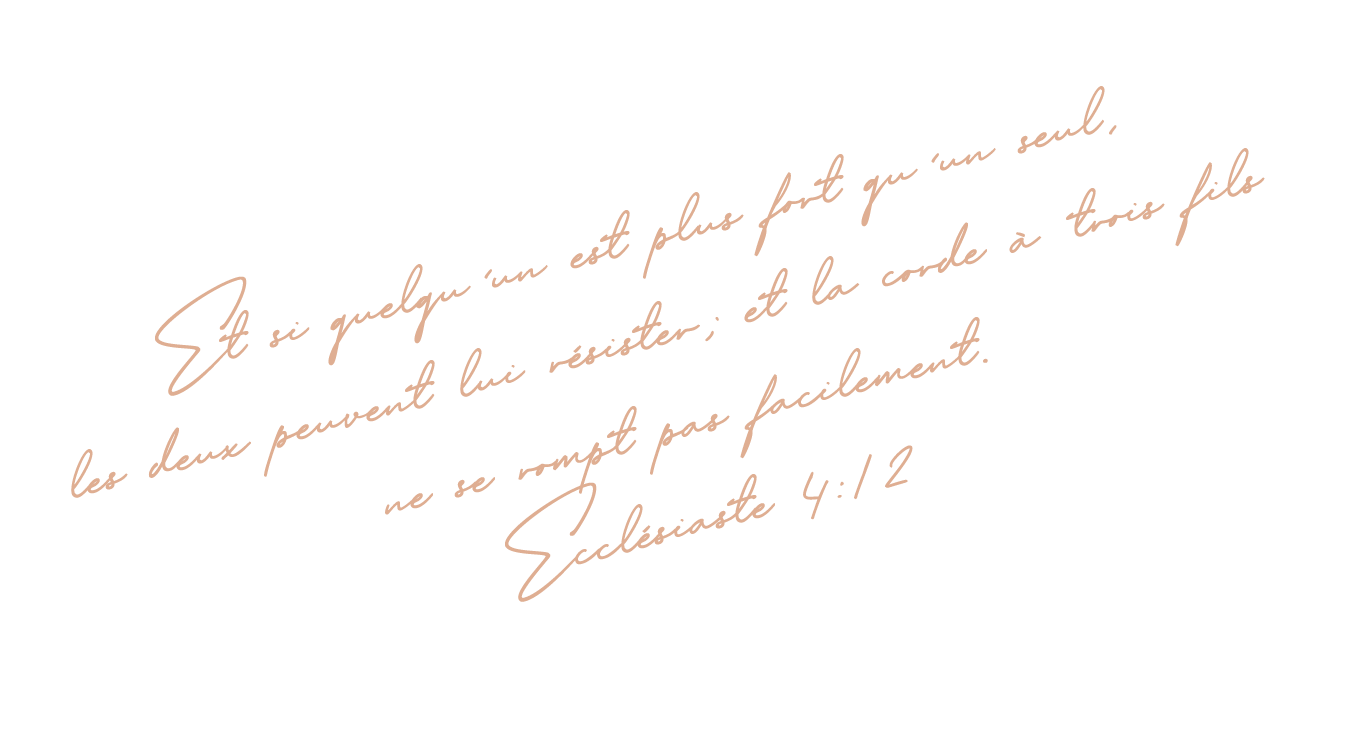 Et si quelqu'un est plus fort qu'un seul,
les deux peuvent lui résister; et la corde à trois fils
ne se rompt pas facilement.
Ecclésiaste 4:12